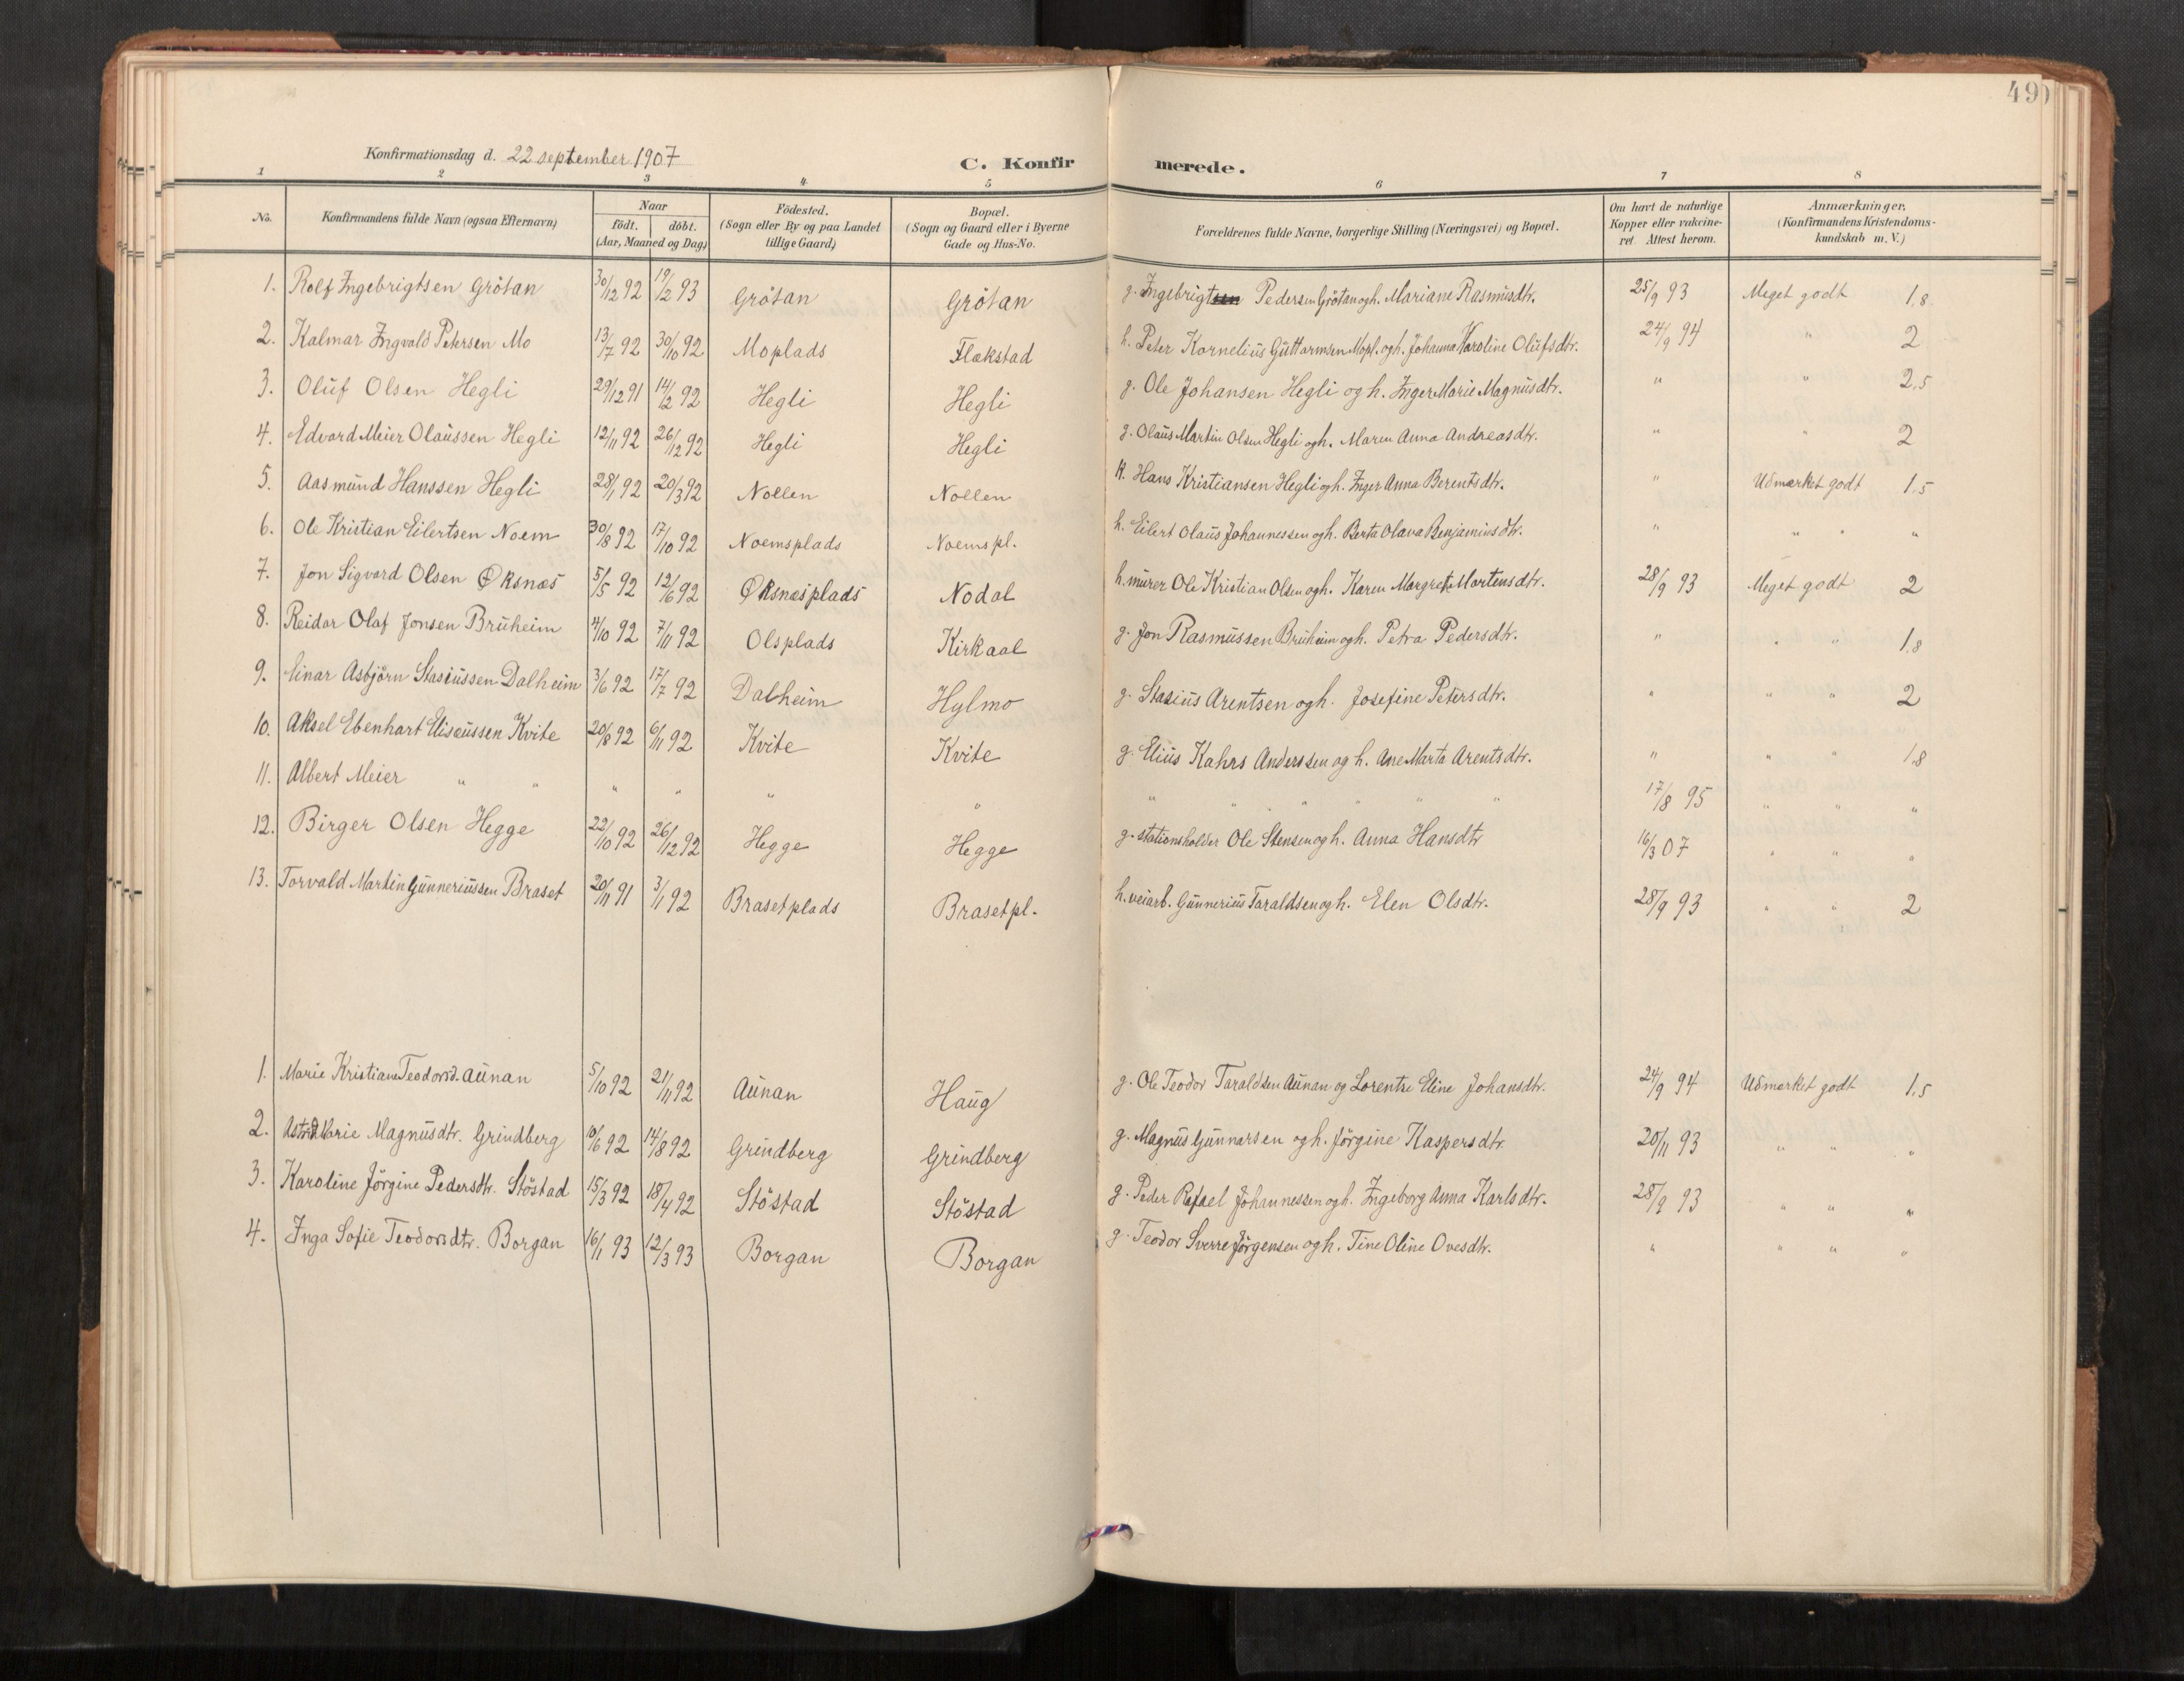 490
Konfirmationsdag d. 22 september 1907
C. Konfirmerede.
1 2 3 4 5 6 7 8
No. Konfirmandens fulde Navn (ogsaa Efternavn) Naar födt. döbt. (Aar, Maaned og Dag) Födested. (Sogn eller By og paa Landet tillige Gaard) Bopæl. (Sogn og Gaard eller i Byerne Gade og Hus-No. Forældrenes fulde Navne, borgerlige Stilling (Næringsvei) og Bopæl. Om havt de naturlige Kopper eller vakcineret. Attest herom. Anmærkninger. (Konfirmandens Kristendomskundskab m. V.)
1. Rolf Ingebrigtsen Grötan 30/12 92 19/2 93 Grötan Grötan g. Ingebrigt Pedersen Grötan og h. Mariane Rasmusdtr. 25/9 93 Meget godt 1,8
2. Kalmar Ingvald Petersen Mo 13/7 92 30/10 92 Moplads Flækstad h. Peter Kornelius Guttormsen Mopl. og h. Johanna Karoline Olufsdtr. 24/9 94 " 2
3. Oluf Olsen Hegli 29/12 91 14/2 92 Hegli Hegli g. Ole Johansen Hegli og h. Inger Marie Magnusdtr. " " 2,5
4. Edvard Meier Olaussen Hegli 12/11 92 26/12 92 Hegli Hegli g. Olaus Martin Olsen Hegli og h. Maren Anna Andreasdtr. " " 2
5. Aasmund Hanssen Hegli 28/1 92 20/3 92 Nollen Nollen k. Hans Kristiansen Hegli og h. Inger Anna Berentsdtr. " Udmærket godt 1,5
6. Ole Kristian Eilertsen Noem 30/8 92 17/10 92 Noemsplads Noemspl. h. Eilert Olaus Johannessen og h. Berta Olava Benjaminsdtr. " " " "
7. Jon Sigvard Olsen Øksnæs 5/5 92 12/6 92 Øksnæsplads Nodal h. murer Ole Kristian Olsen og h. Karen Margrete Mortensdtr. 28/9 93 Meget godt 2
8. Reidar Olaf Jonsen Bruheim 4/10 92 7/11 92 Olsplads Kirkaal g. Jon Rasmussen Bruheim og h. Petra Pedersdtr. " " " 1,8
9. Einar Asbjörn Stasiussen Dalheim 3/6 92 17/7 92 Dalheim Hylmo g. Stasius Arentsen og h. Josefine Petersdtr. " " " 2
10. Aksel Ebenhart Eliseussen Kvite 20/8 92 6/11 92 Kvite Kvite g. Elius Kahrs Anderssen og h. Ane Marta Arentsdtr. " " " 1,8
11. Albert Meier " " " " " " " " " " " " 17/8 95 " " "
12. Birger Olsen Hegge 22/10 92 26/12 92 Hegge Hegge g. stationsholder Ole Stensen og h. Anna Hansdtr 16/3 07 " " "
13. Torvald Martin Gunneriussen Braset 20/11 91 3/1 92 Brasetplads Brasetpl. h. veiarb. Gunnerius Taraldsen og h. Elen Olsdtr. 28/9 93 " " 2
1. Marie Kristiane Teodorsd. Aunan 5/10 92 21/11 92 Aunan Haug g. Ole Teodor Taraldsen Aunan og Lorentse Eline Johansdtr. 24/9 94 Udmærket godt 1,5
2. Astrid Marie Magnusdtr. Grindberg 10/6 92 14/8 92 Grindberg Grindberg g. Magnus Gunnarsen og h. Jörgine Kaspersdtr 20/11 93 " " "
3. Karoline Jörgine Pedersdtr. Stöstad 15/3 92 18/4 92 Stöstad Stöstad g. Peder Rafael Johannessen og h. Ingeborg Anna Karlsdtr. 28/9 93 " " "
4. Inga Sofie Teodorsdtr. Borgan 16/1 93 12/3 93 Borgan Borgan g. Teodor Sverre Jörgensen og h. Tine Oline Ovesdtr. " " " "